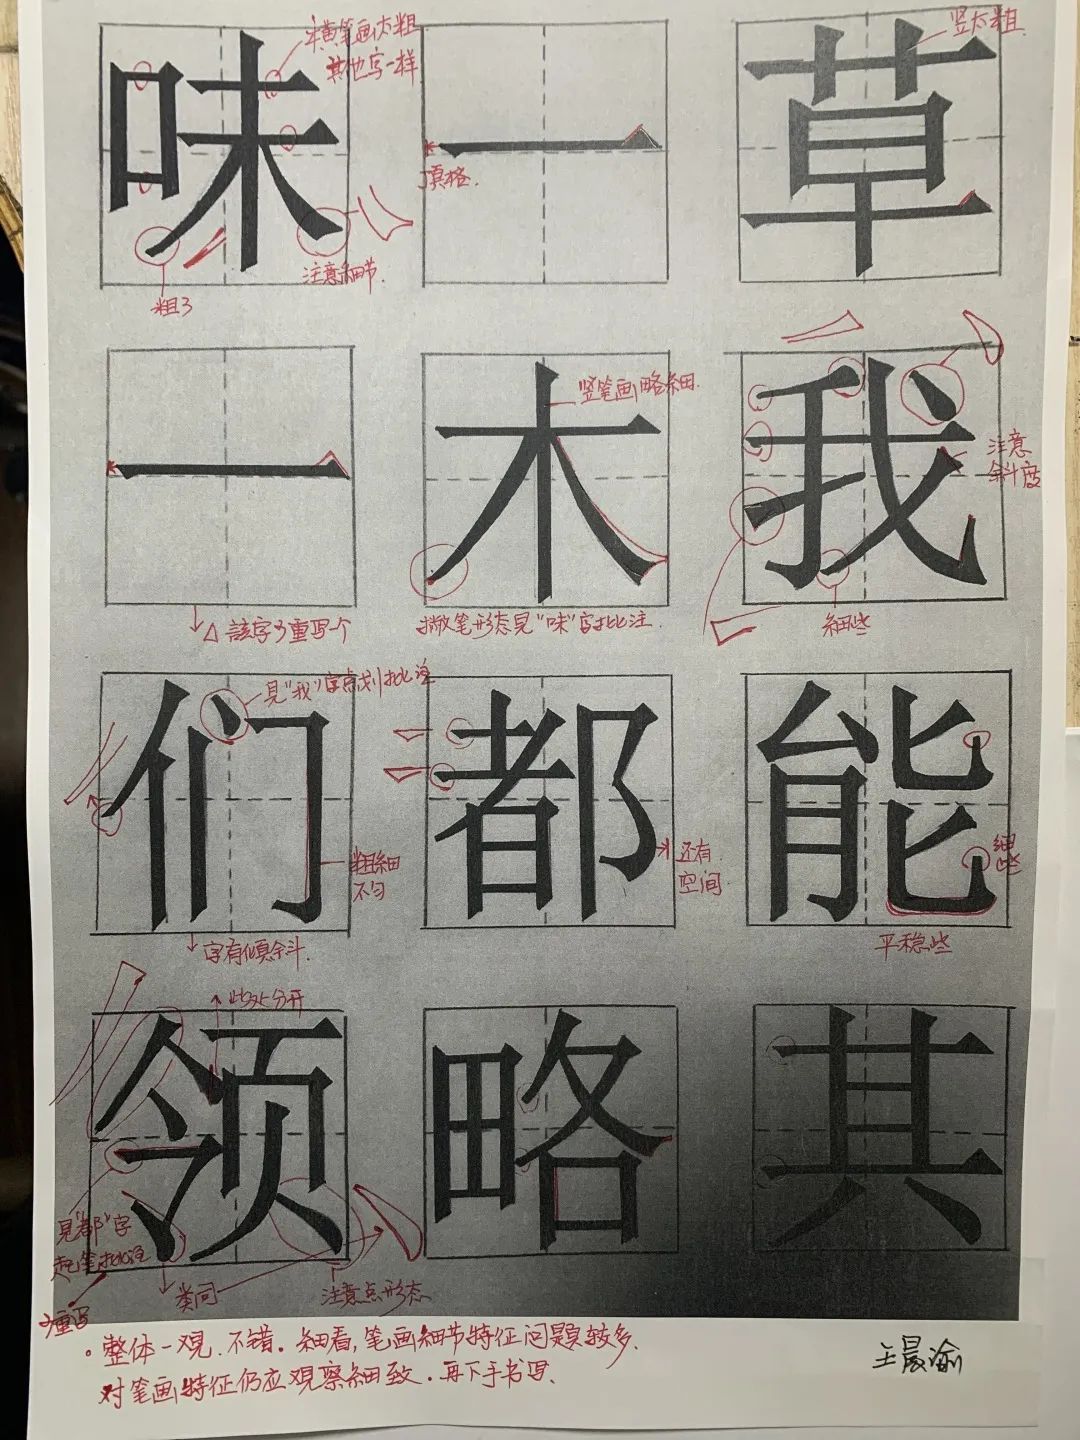 横笔画太粗
其他字一样
竖太粗
味
一
草
顶格.
注意细节.
粗了
竖笔画略细.
一
木
我
注意
斜度
该字重写一个
撇笔形态见"味"字批注.
细些
见"我"字点划批注
们
都
能
粗细
不匀
还有
空间.
细些
字有倾斜.
平稳些
此处分开
领
略
其
见"都"字
起笔批注
类同
注意点形态
重写
整体一观,不错。细看,笔画细节特征问题较多.
对笔画特征仍应观察细致.再下手书写.
王晨渝